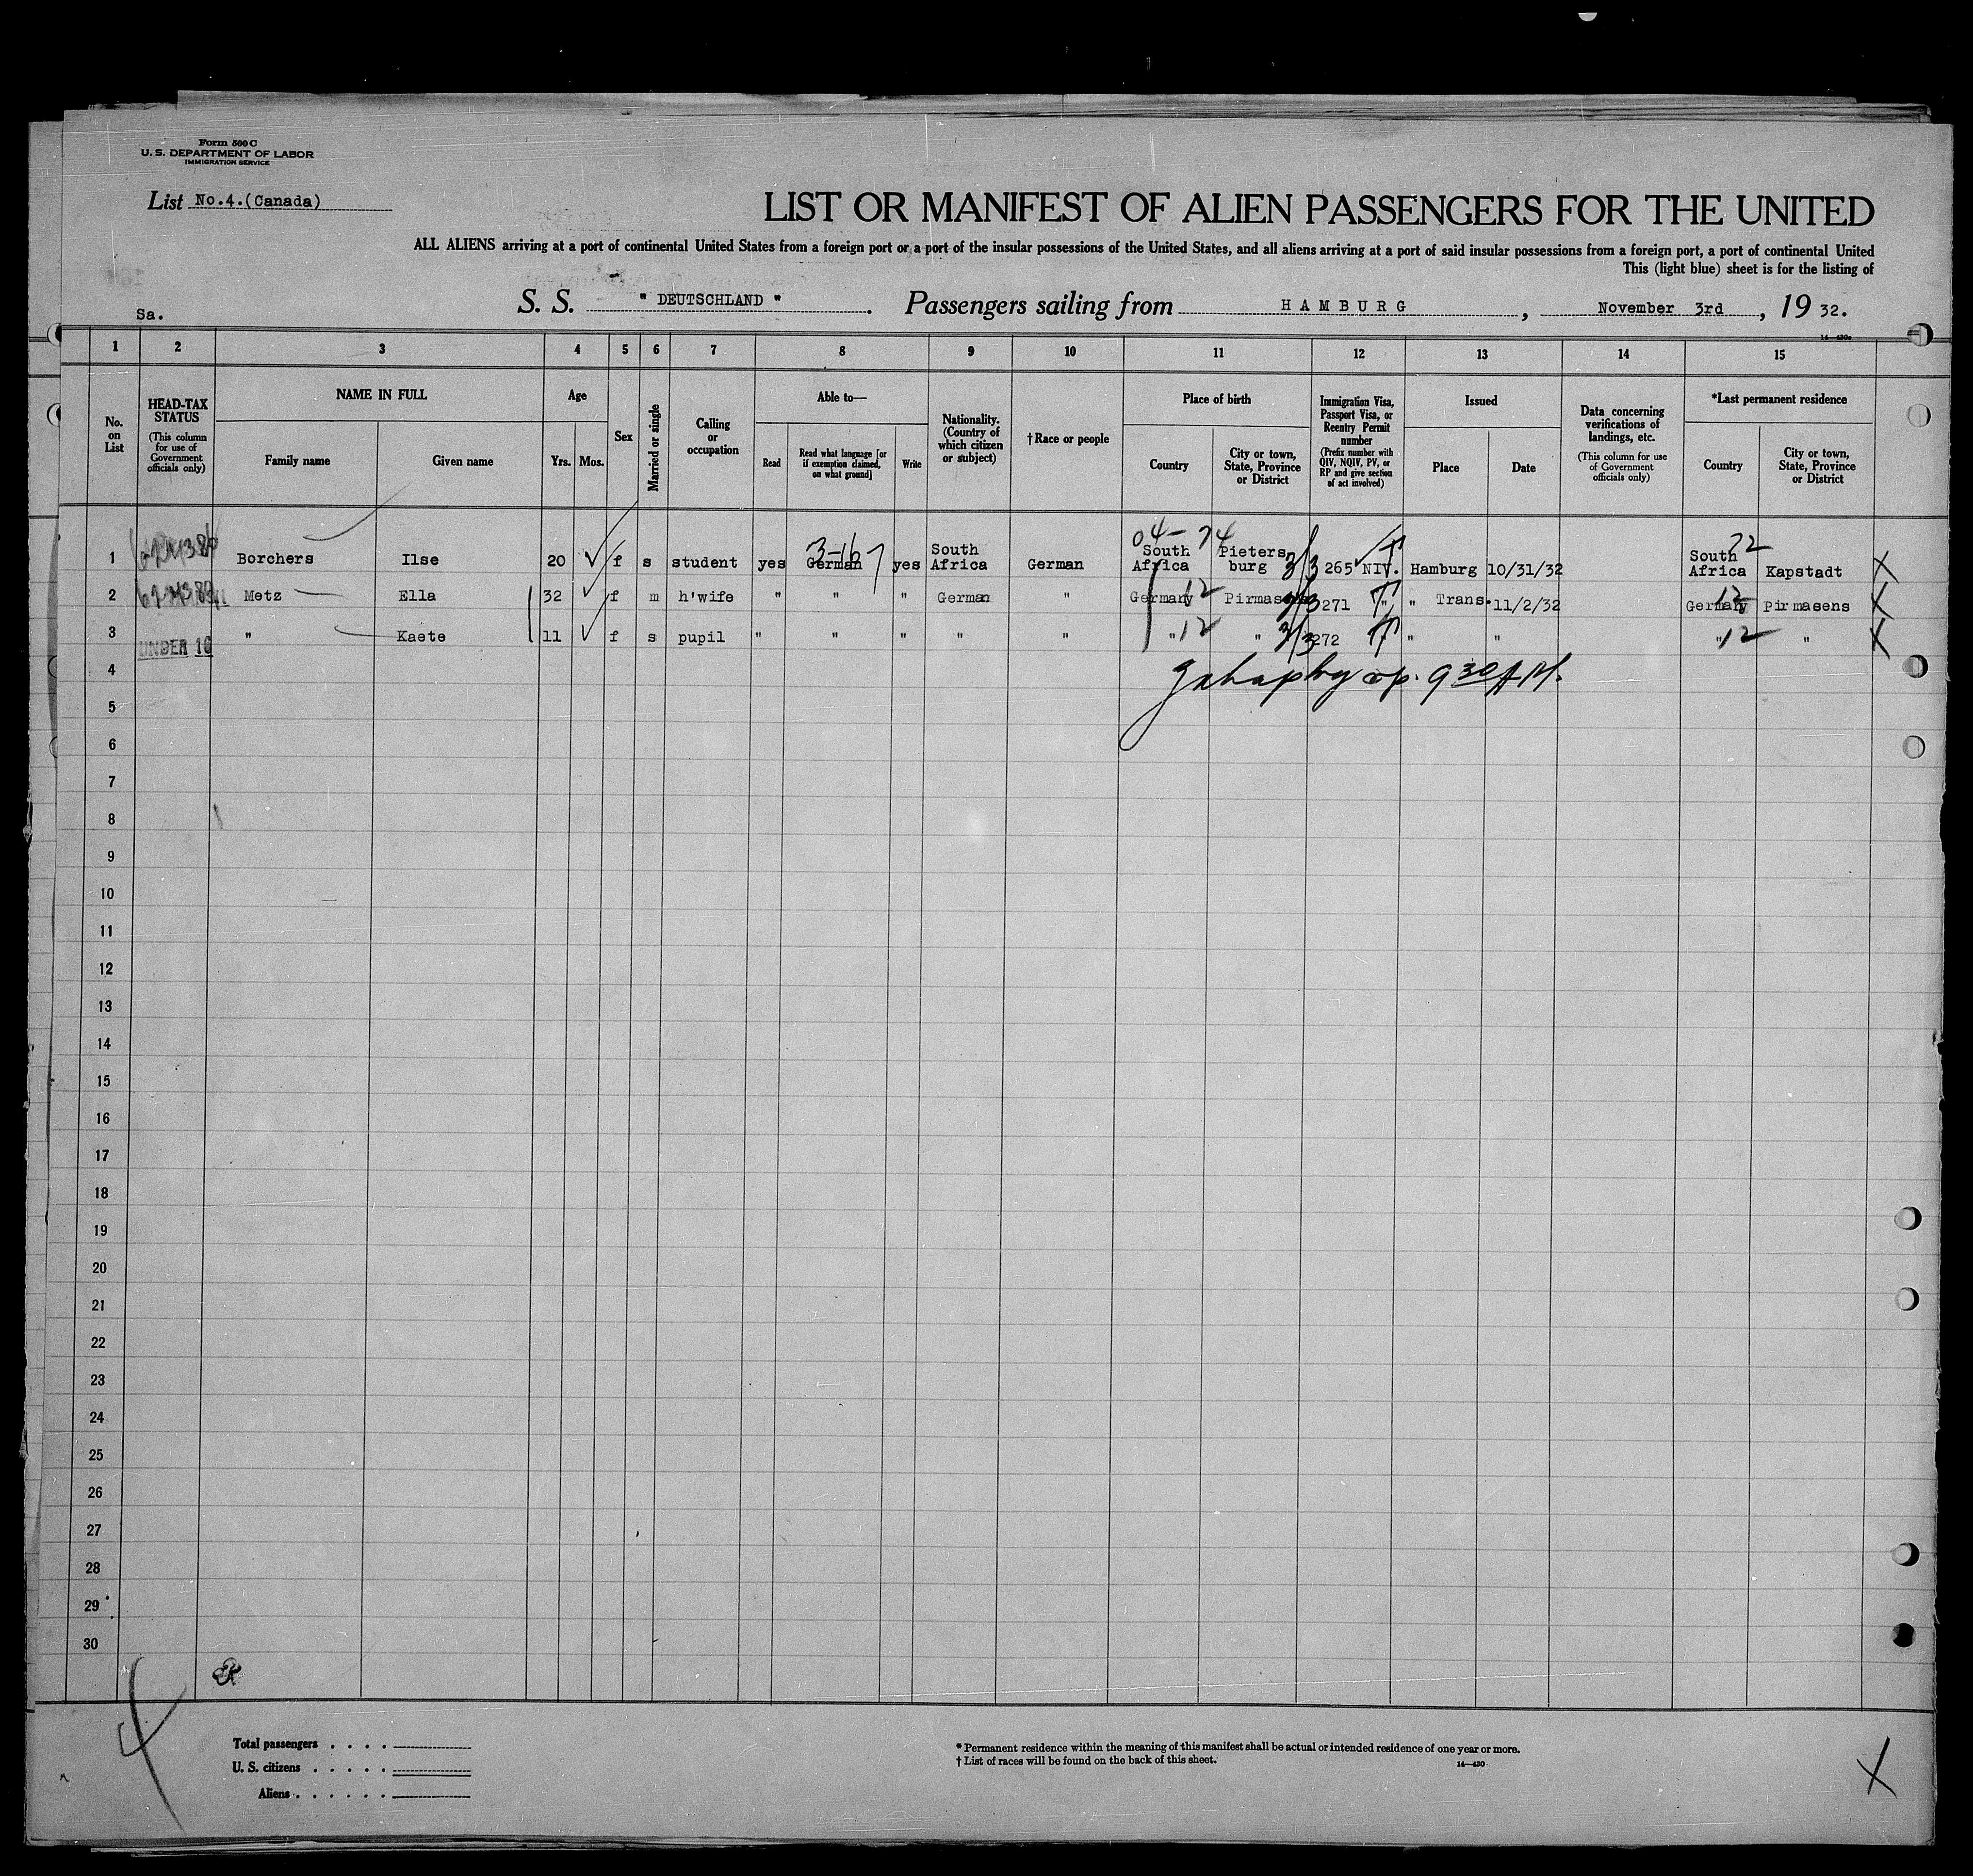 Form 500 C
U. S. DEPARTMENT OF LABOR
IMMIGRATION SERVICE
List No.4.(Canada)
LIST OR MANIFEST OF ALIEN PASSENGERS FOR THE UNITED
ALL ALIENS arriving at a port of continental United States from a foreign port or a port of the insular possessions of the United States, and all aliens arriving at a port of said insular possessions from a foreign port, a port of continental United
This (light blue) sheet is for the listing of
Sa. S. S. " DEUTSCHLAND ". Passengers sailing from HAMBURG, November 3rd, 1932.
1 2 3 4 5 6 7 8 9 10 11 12 13 14 15
No. on List
HEAD-TAX STATUS (This column for use of Government officials only)
NAME IN FULL Family name Given name
Age Yrs. Mos.
Sex
Married or single
Calling or occupation
Able to— Read Read what language [or if exemption claimed, on what ground] Write
Nationality. (Country of which citizen or subject)
†Race or people
Place of birth Country City or town, State, Province or District
Immigration Visa, Passport Visa, or Reentry Permit number (Prefix number with QIV, NQIV, PV, or RP and give section of act involved)
Issued Place Date
Data concerning verifications of landings, etc. (This column for use of Government officials only)
*Last permanent residence Country City or town, State, Province or District
04- 74 72
1 Borchers Ilse 20 f s student yes German 3-167 yes South Africa German South Africa Pietersburg 3/3 265 NIV. Hamburg 10/31/32 South Africa Kapstadt X
2 Metz Ella 32 f m h'wife " " " German " Germany 12 Pirmasens 3/3 271 " " Trans. 11/2/32 Germany 12 Pirmasens X
3 UNDER 16 " Kaete 11 f s pupil " " " " " " 12 " 3/3 272 " " " 12 " X
4 930 AM.
5
6
7
8
9
10
11
12
13
14
15
16
17
18
19
20
21
22
23
24
25
26
27
28
29
30
Total passengers . . . .
U. S. citizens . . . . .
Aliens . . . . . .
* Permanent residence within the meaning of this manifest shall be actual or intended residence of one year or more.
† List of races will be found on the back of this sheet.
14—430
X